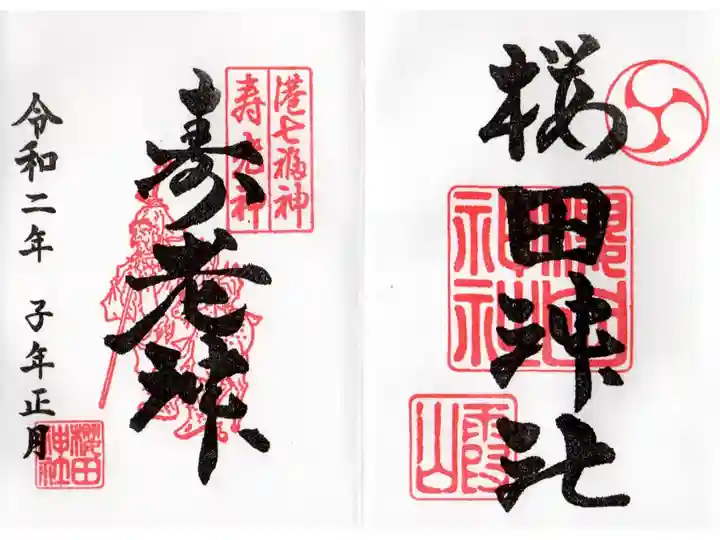 桜田神社
櫻田
神社
霞山
港七福神
寿老神
寿老神
令和二年 子年正月
櫻田
神社